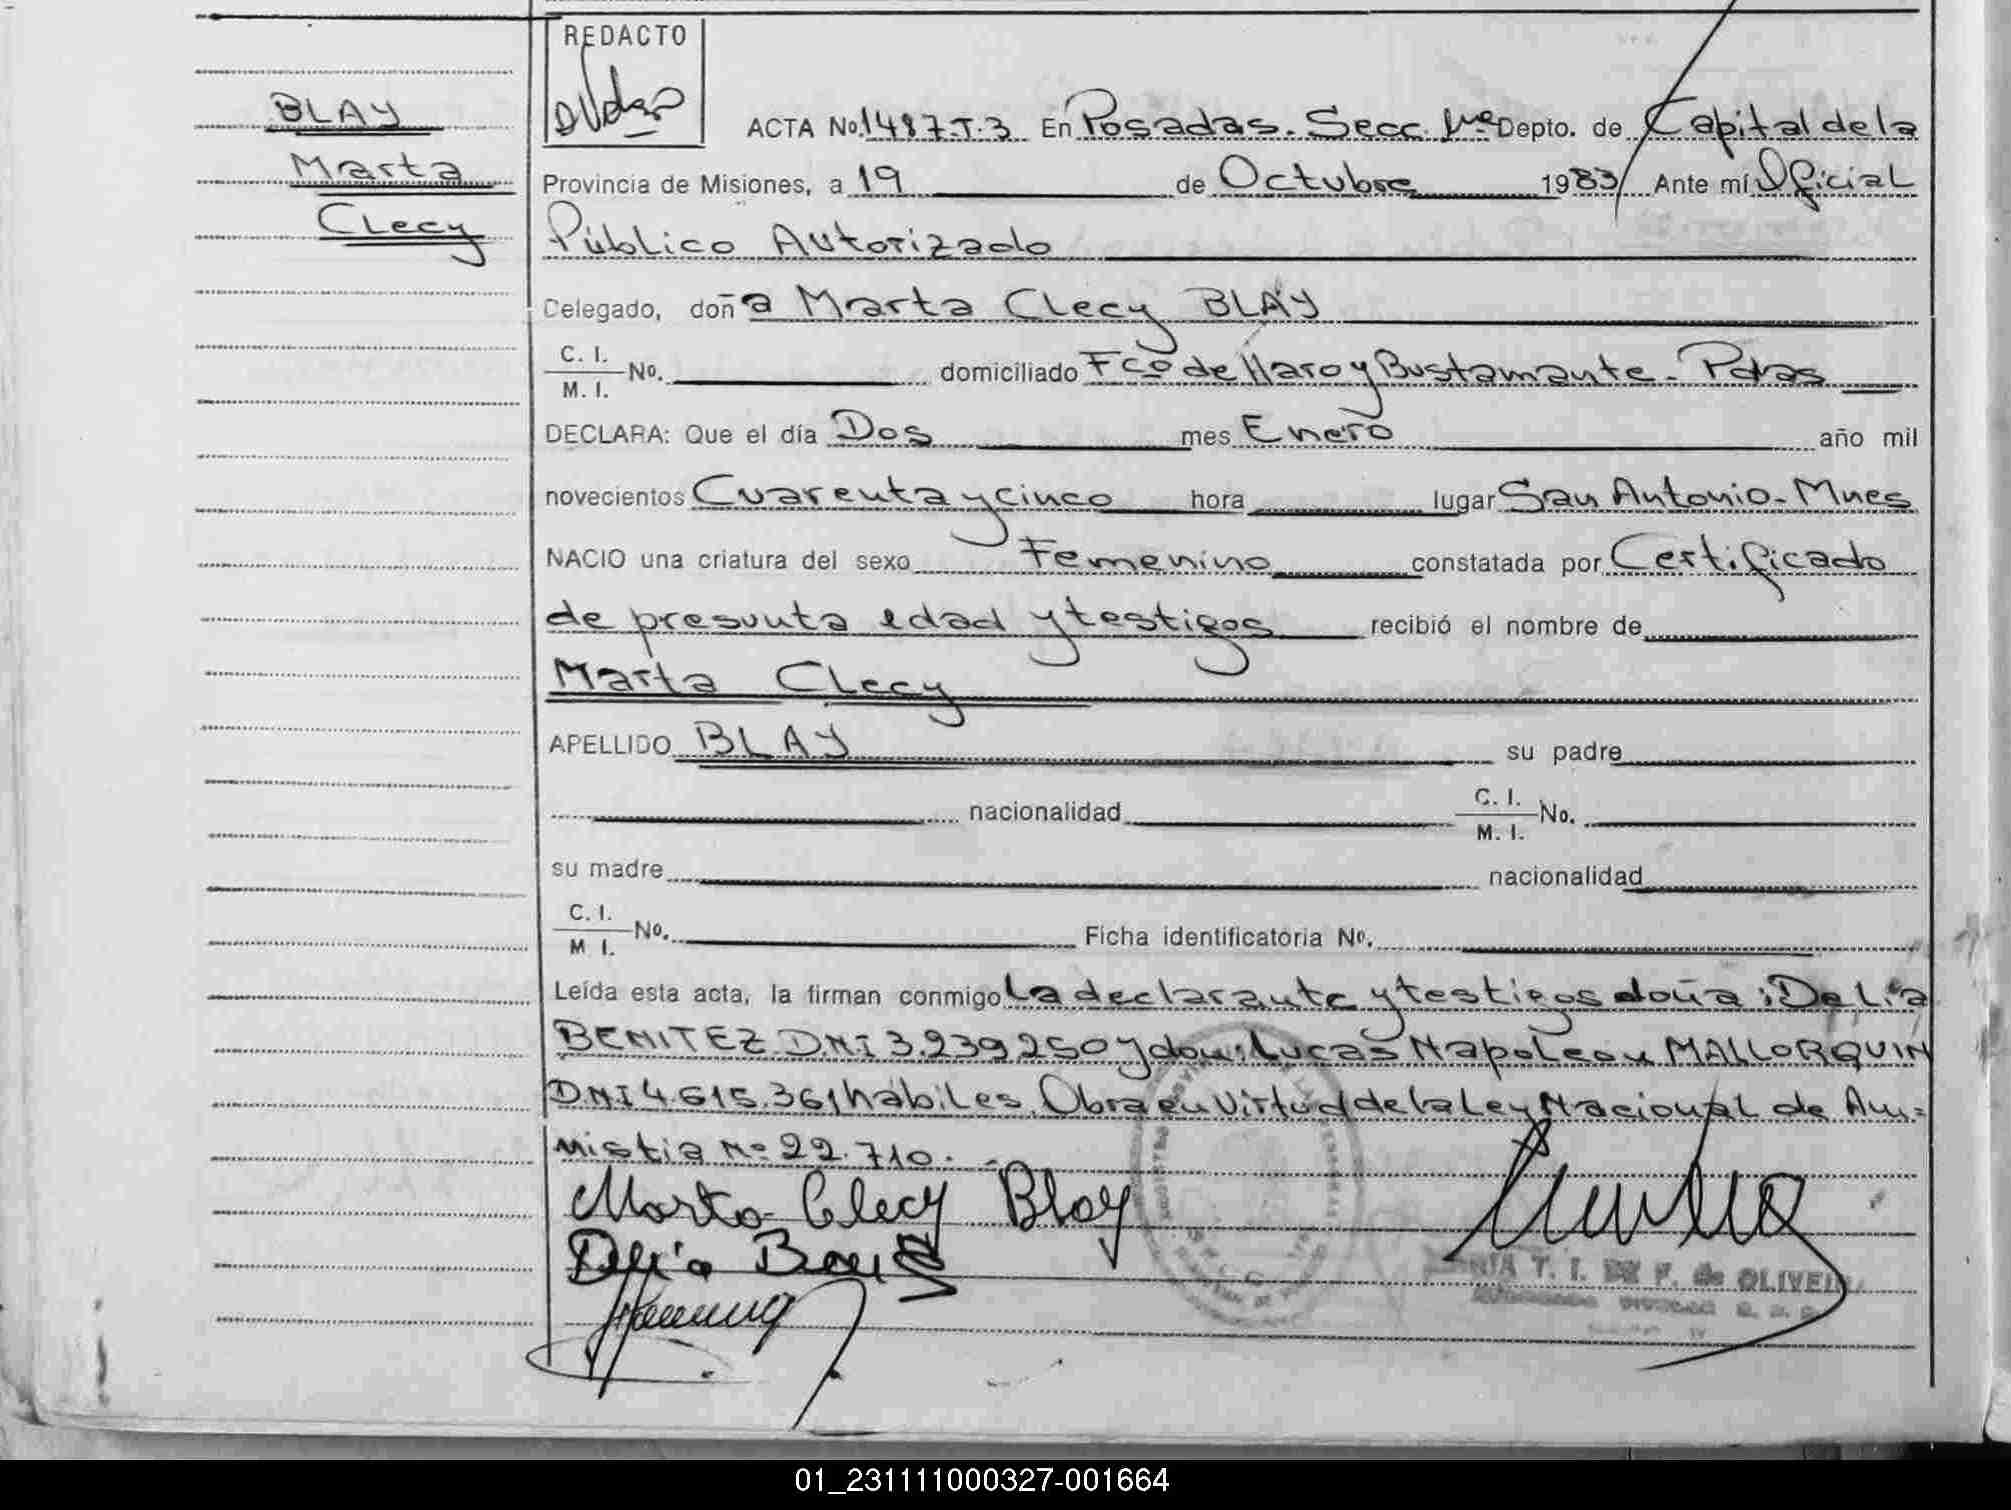 REDACTO
BLAY
Marta
Clecy
ACTA No. 1487.T.3 En Posadas. Secc. 1ra Depto. de Capital de la
Provincia de Misiones, a 19 de Octubre 1983 Ante mí Oficial
Público Autorizado
Celegado, doña Marta Clecy BLAY
C. I.
M. I. No. domiciliado Fco de Haro y Bustamante - Pdas
DECLARA: Que el día Dos mes Enero año mil
novecientos Cuarenta y cinco hora lugar San Antonio - Mnes
NACIO una criatura del sexo Femenino constatada por Certificado
de presunta edad y testigos recibió el nombre de
Marta Clecy
APELLIDO BLAY su padre
nacionalidad C. I.
M. I. No.
su madre nacionalidad
C. I.
M. I. No. Ficha identificatoria No.
Leída esta acta, la firman conmigo La declarante y testigos doña: Delia
BENITEZ D.N.I 3.239.250 y don: Lucas Napoleon MALLORQUIN
D.N.I 4.615.361 hábiles. Obra en Virtud de la Ley Nacional de Am=
nistia No 22.710. -
Marta Clecy Blay
Delia
T. I. DE F. de OLIVEIRA
01_231111000327-001664